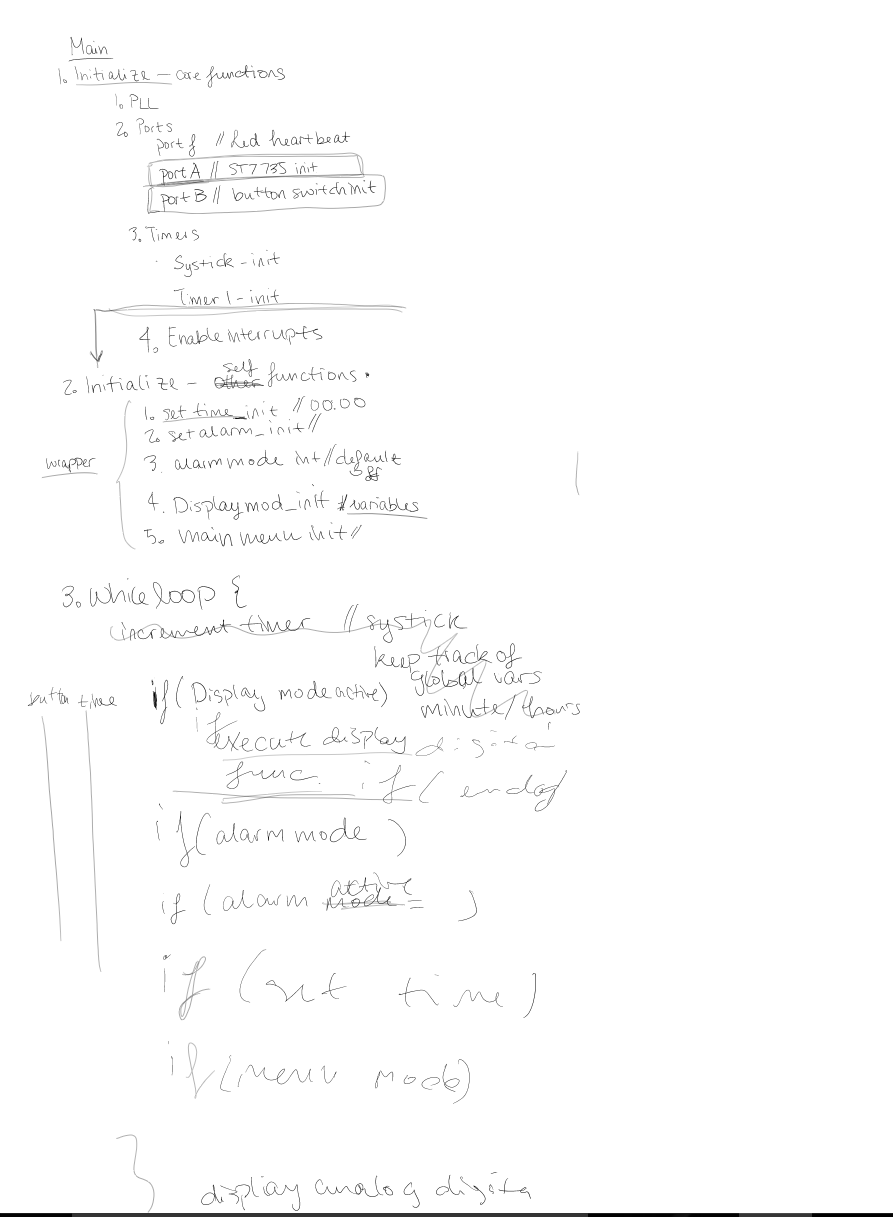 Main
1. Initialize — core functions
1. PLL
2. Ports
port f // Led heartbeat
port A // ST7735 init
port B // button switch init
3. Timers
Systick - init
Timer 1 - init
4. Enable interrupts
2. Initialize - other self functions.
1. set time_init // 00.00
2. set alarm_init //
3. alarm mode int // default off
wrapper
4. Display mod_init # variables
5. main menu init //
3. While loop {
increment timer // systick
keep track of
global vars
minute / hours
button time
if (Display mode active)
if
execute display
func.
if (
if (alarm mode )
if (alarm mode active = )
if (set time)
if (menu mode)
}
display analog digita